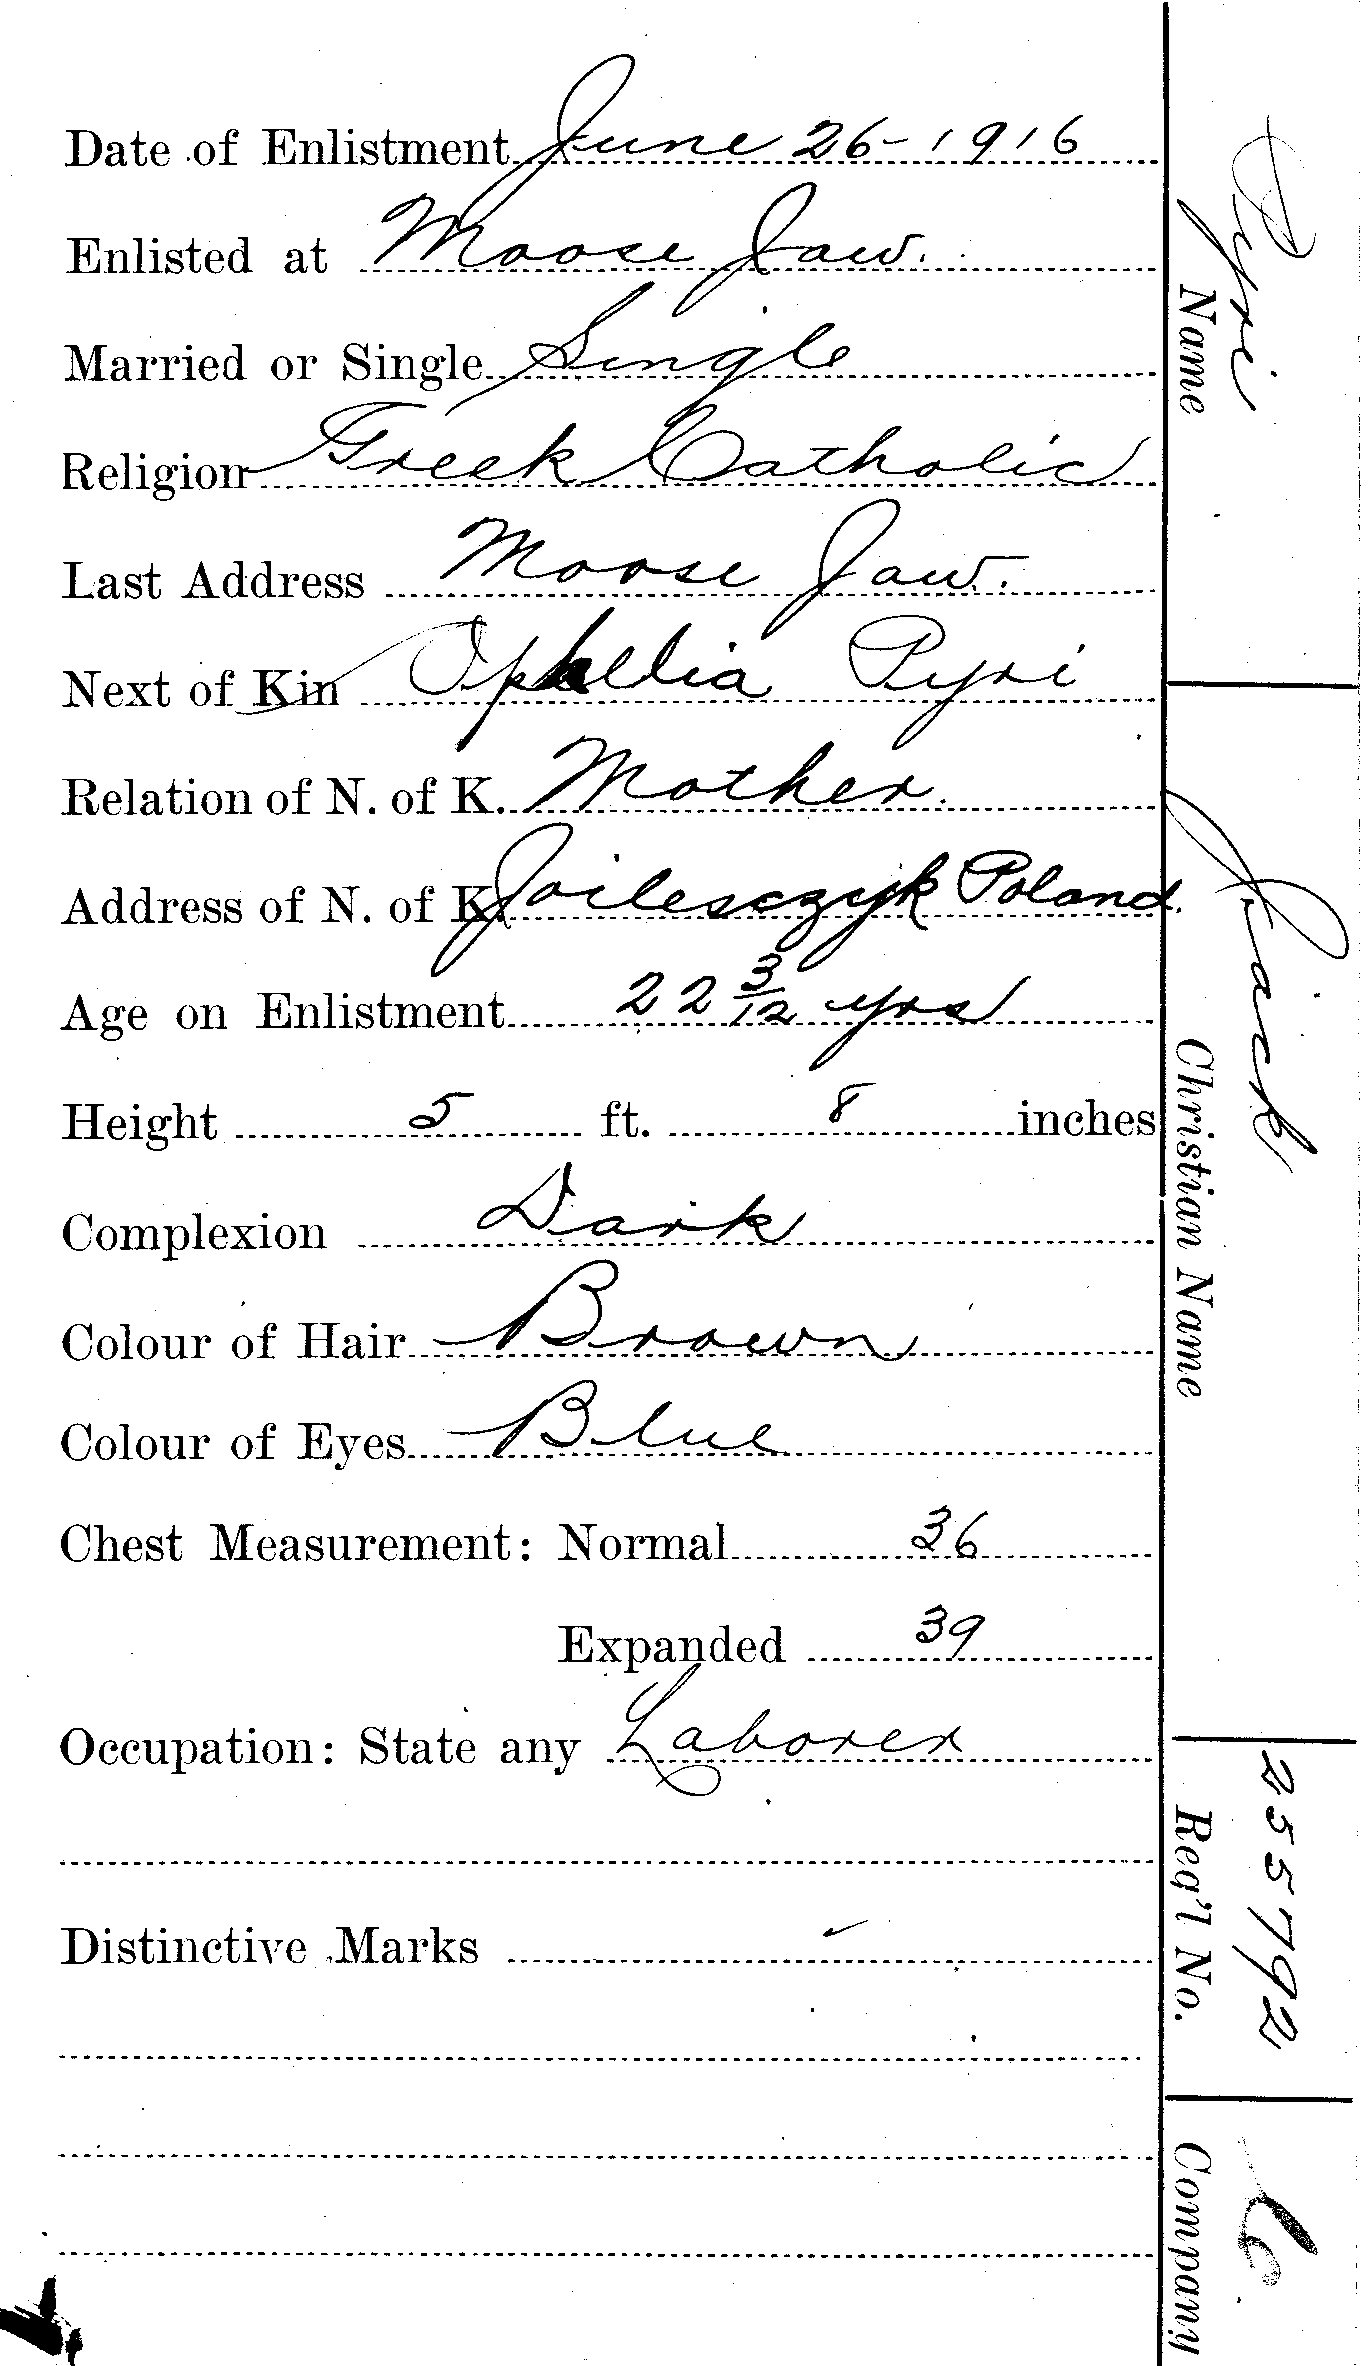 Date of Enlistment June 26-1916
Enlisted at Moose Jaw.
Married or Single Single
Religion Greek Catholic
Last Address Moose Jaw.
Next of Kin Ophelia Pyri
Relation of N. of K. Mother.
Address of N. of K. Poland.
Age on Enlistment 22 3/12 yrs
Height 5 ft. 8 inches
Complexion Dark
Colour of Hair Brown
Colour of Eyes Blue
Chest Measurement: Normal 36
Expanded 39
Occupation: State any Laborer
Distinctive Marks -
Pyri
Name
Jack
Christian Name
255792
Reg'l No.
C
Company